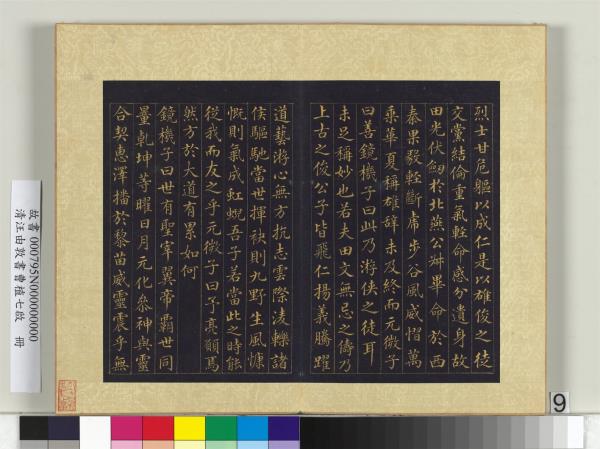 烈士甘危軀以成仁是以雄俊之徒
交黨結倫重氣輕命感分遺身故
田光伏劒於北燕公叔畢命於西
秦果毅輕斷虎步谷風威慴萬
乘華夏稱雄辭未及終而元微子
曰善鏡機子曰此乃游俠之徒耳
未足稱妙也若夫田文無忌之儔乃
上古之俊公子皆飛仁揚義騰躍
道藝游心無方抗志雲際淩轢諸
侯驅馳當世揮袂則九野生風慷
慨則氣成虹蜺吾子若當此之時能
從我而友之乎元微子曰予亮願焉
然方於大道有累如何
鏡機子曰世有聖宰翼帝霸世同
量乾坤等曜日月元化叅神與靈
合契惠澤播於黎苗威靈震乎無
故書 000795N000000000
清汪由敦書曹植七啟 冊
9